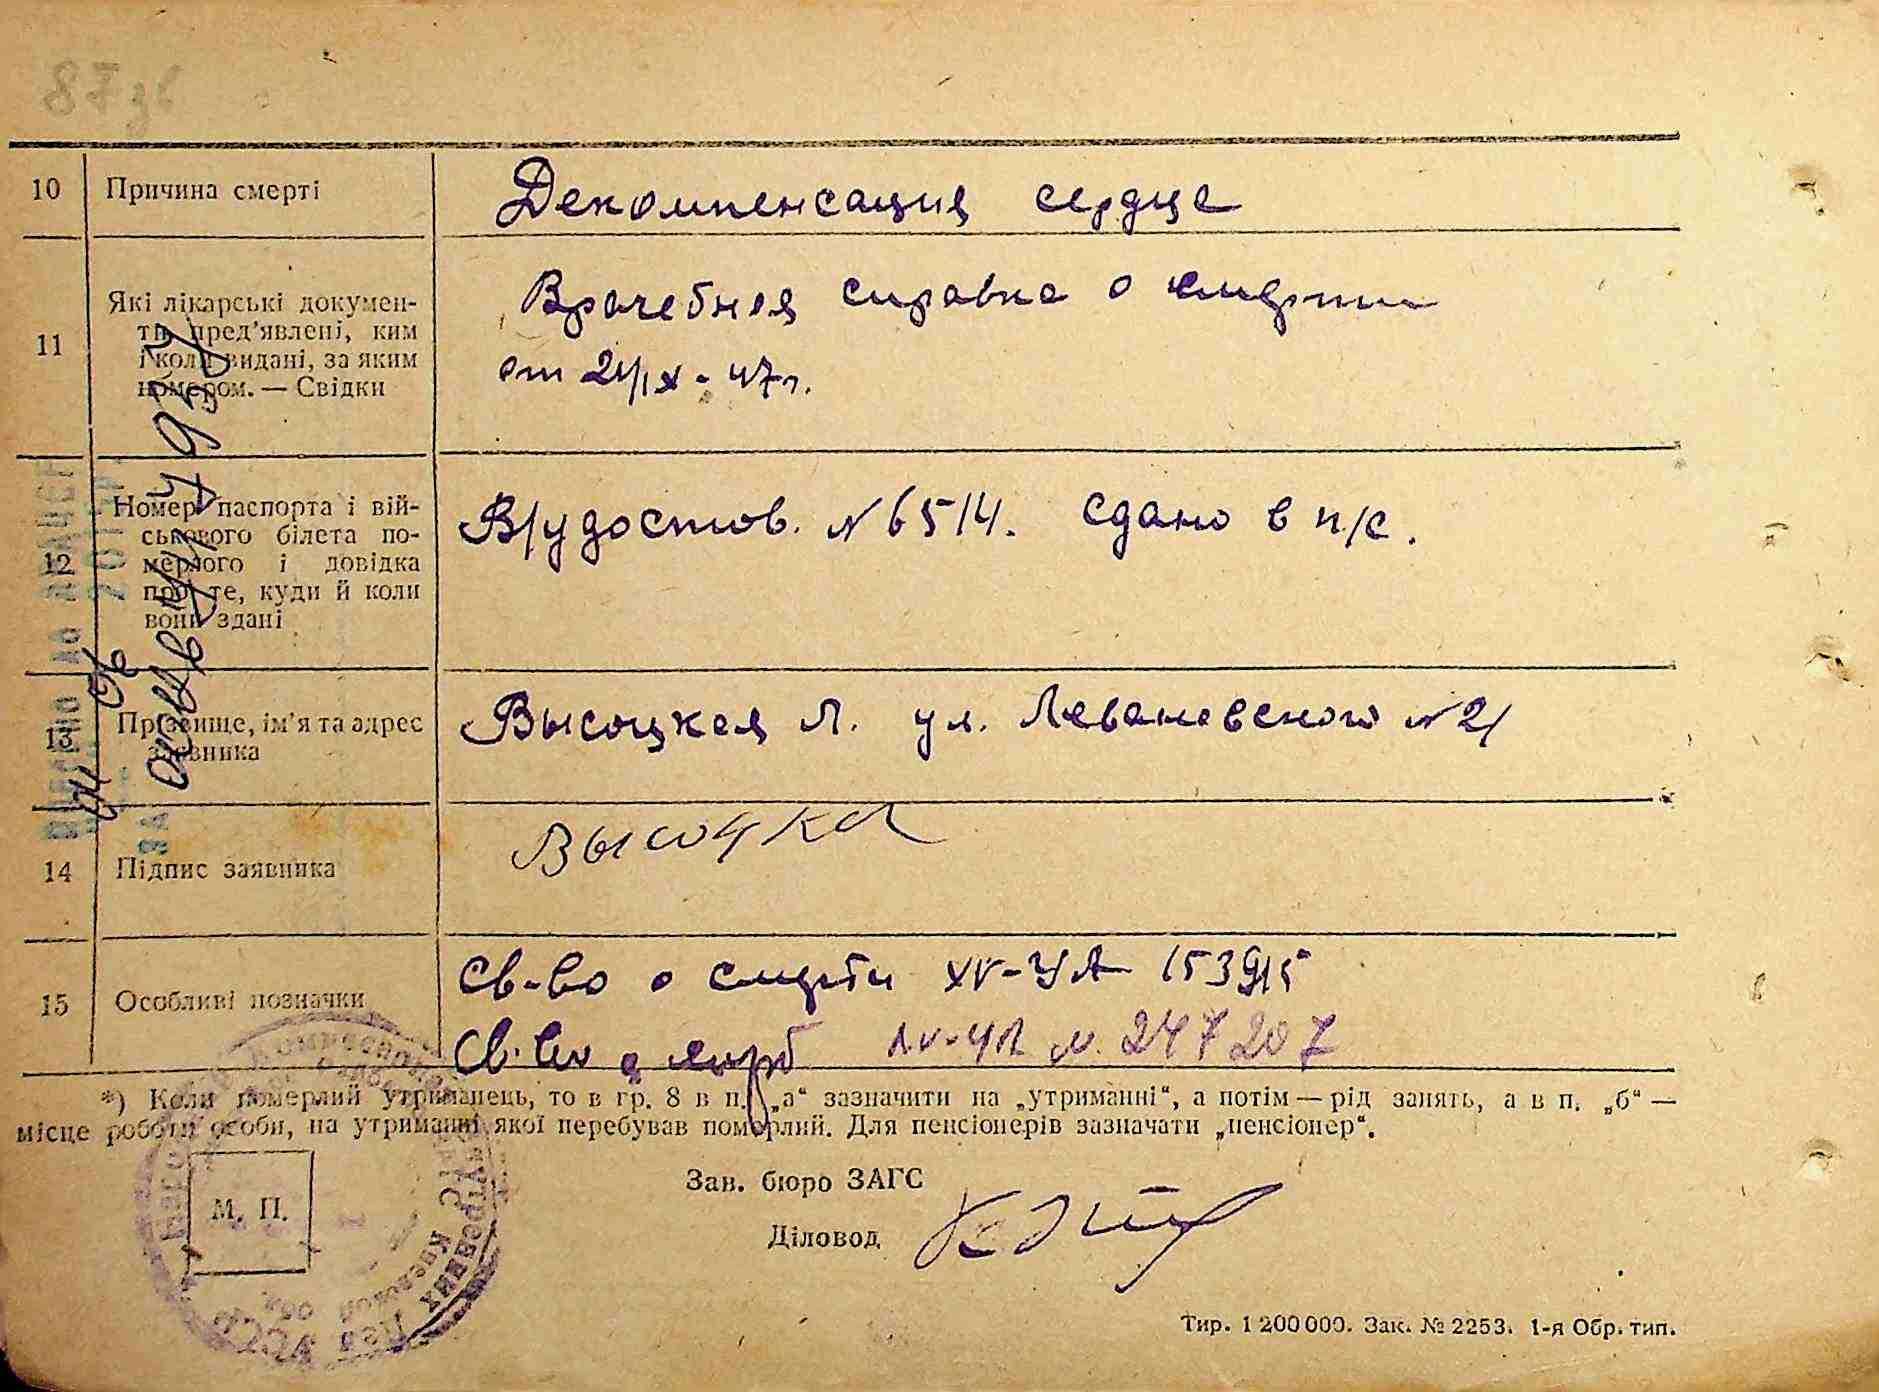 87
10 Причина смерті Декомпенсация сердце
11 Які лікарські докумен-
ти пред'явлені, ким
і коли видані, за яким
номером. — Свідки
Врачебная справка о смерти
от 21/IX - 47 г.
12 Номер паспорта і вій-
ськового білета по-
мерлого і довідка
про те, куди й коли
вони здані
В/удостов. № 6514. сдано в п/с.
13 Прізвище, ім'я та адрес
заявника
Высоцкая Л. ул. Леваневского № 21
14 Підпис заявника Высоцка
15 Особливі позначки
Св-во о смерти XV-УА 153915
Св-во о смерт № 247207
*) Коли померлий утриманець, то в гр. 8 в п. „а“ зазначити на „утриманні“, а потім — рід занять, а в п. „б“ —
місце роботи особи, на утриманні якої перебував померлий. Для пенсіонерів зазначати „пенсіонер“.
М. П.
Зав. бюро ЗАГС
Діловод
Тир. 1 200 000. Зак. № 2253. 1-я Обр. тип.